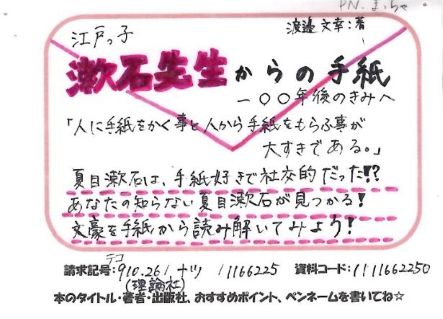 P.N. まっちゃ
江戸っ子
渡邉 文幸:著
漱石先生からの手紙
一〇〇年後のきみへ
「人に手紙をかく事と人から手紙をもらふ事が
大すきである。」
夏目漱石は、手紙好きで社交的だった!?
あなたの知らない夏目漱石が見つかる!
文豪を手紙から読み解いてみよう!
テコ
請求記号:910.261 ナツ 11166225 資料コード:1111662250
(理論社)
本のタイトル・著者・出版社、おすすめポイント、ペンネームを書いてね☆